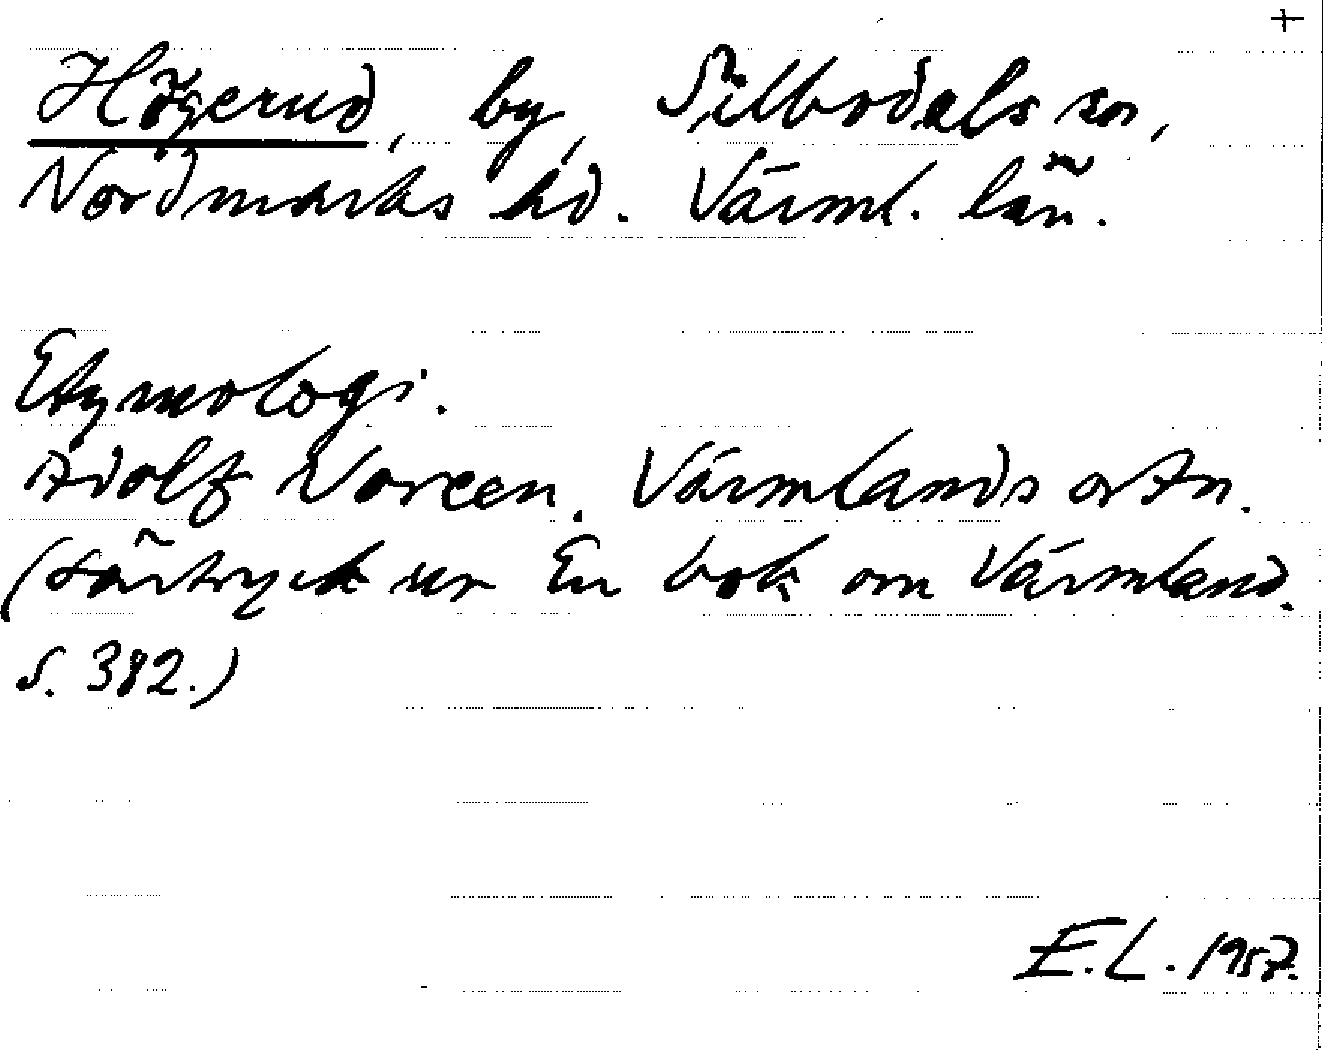 +
Högerud, by, Silbodals sn,
Nordmarks hd. Värml. län.
Etymologi.
Adolf Noreen. Värmlands ortn.
(Särtryck ur En bok om Värmland.
S. 382.)
E.L. 1957.